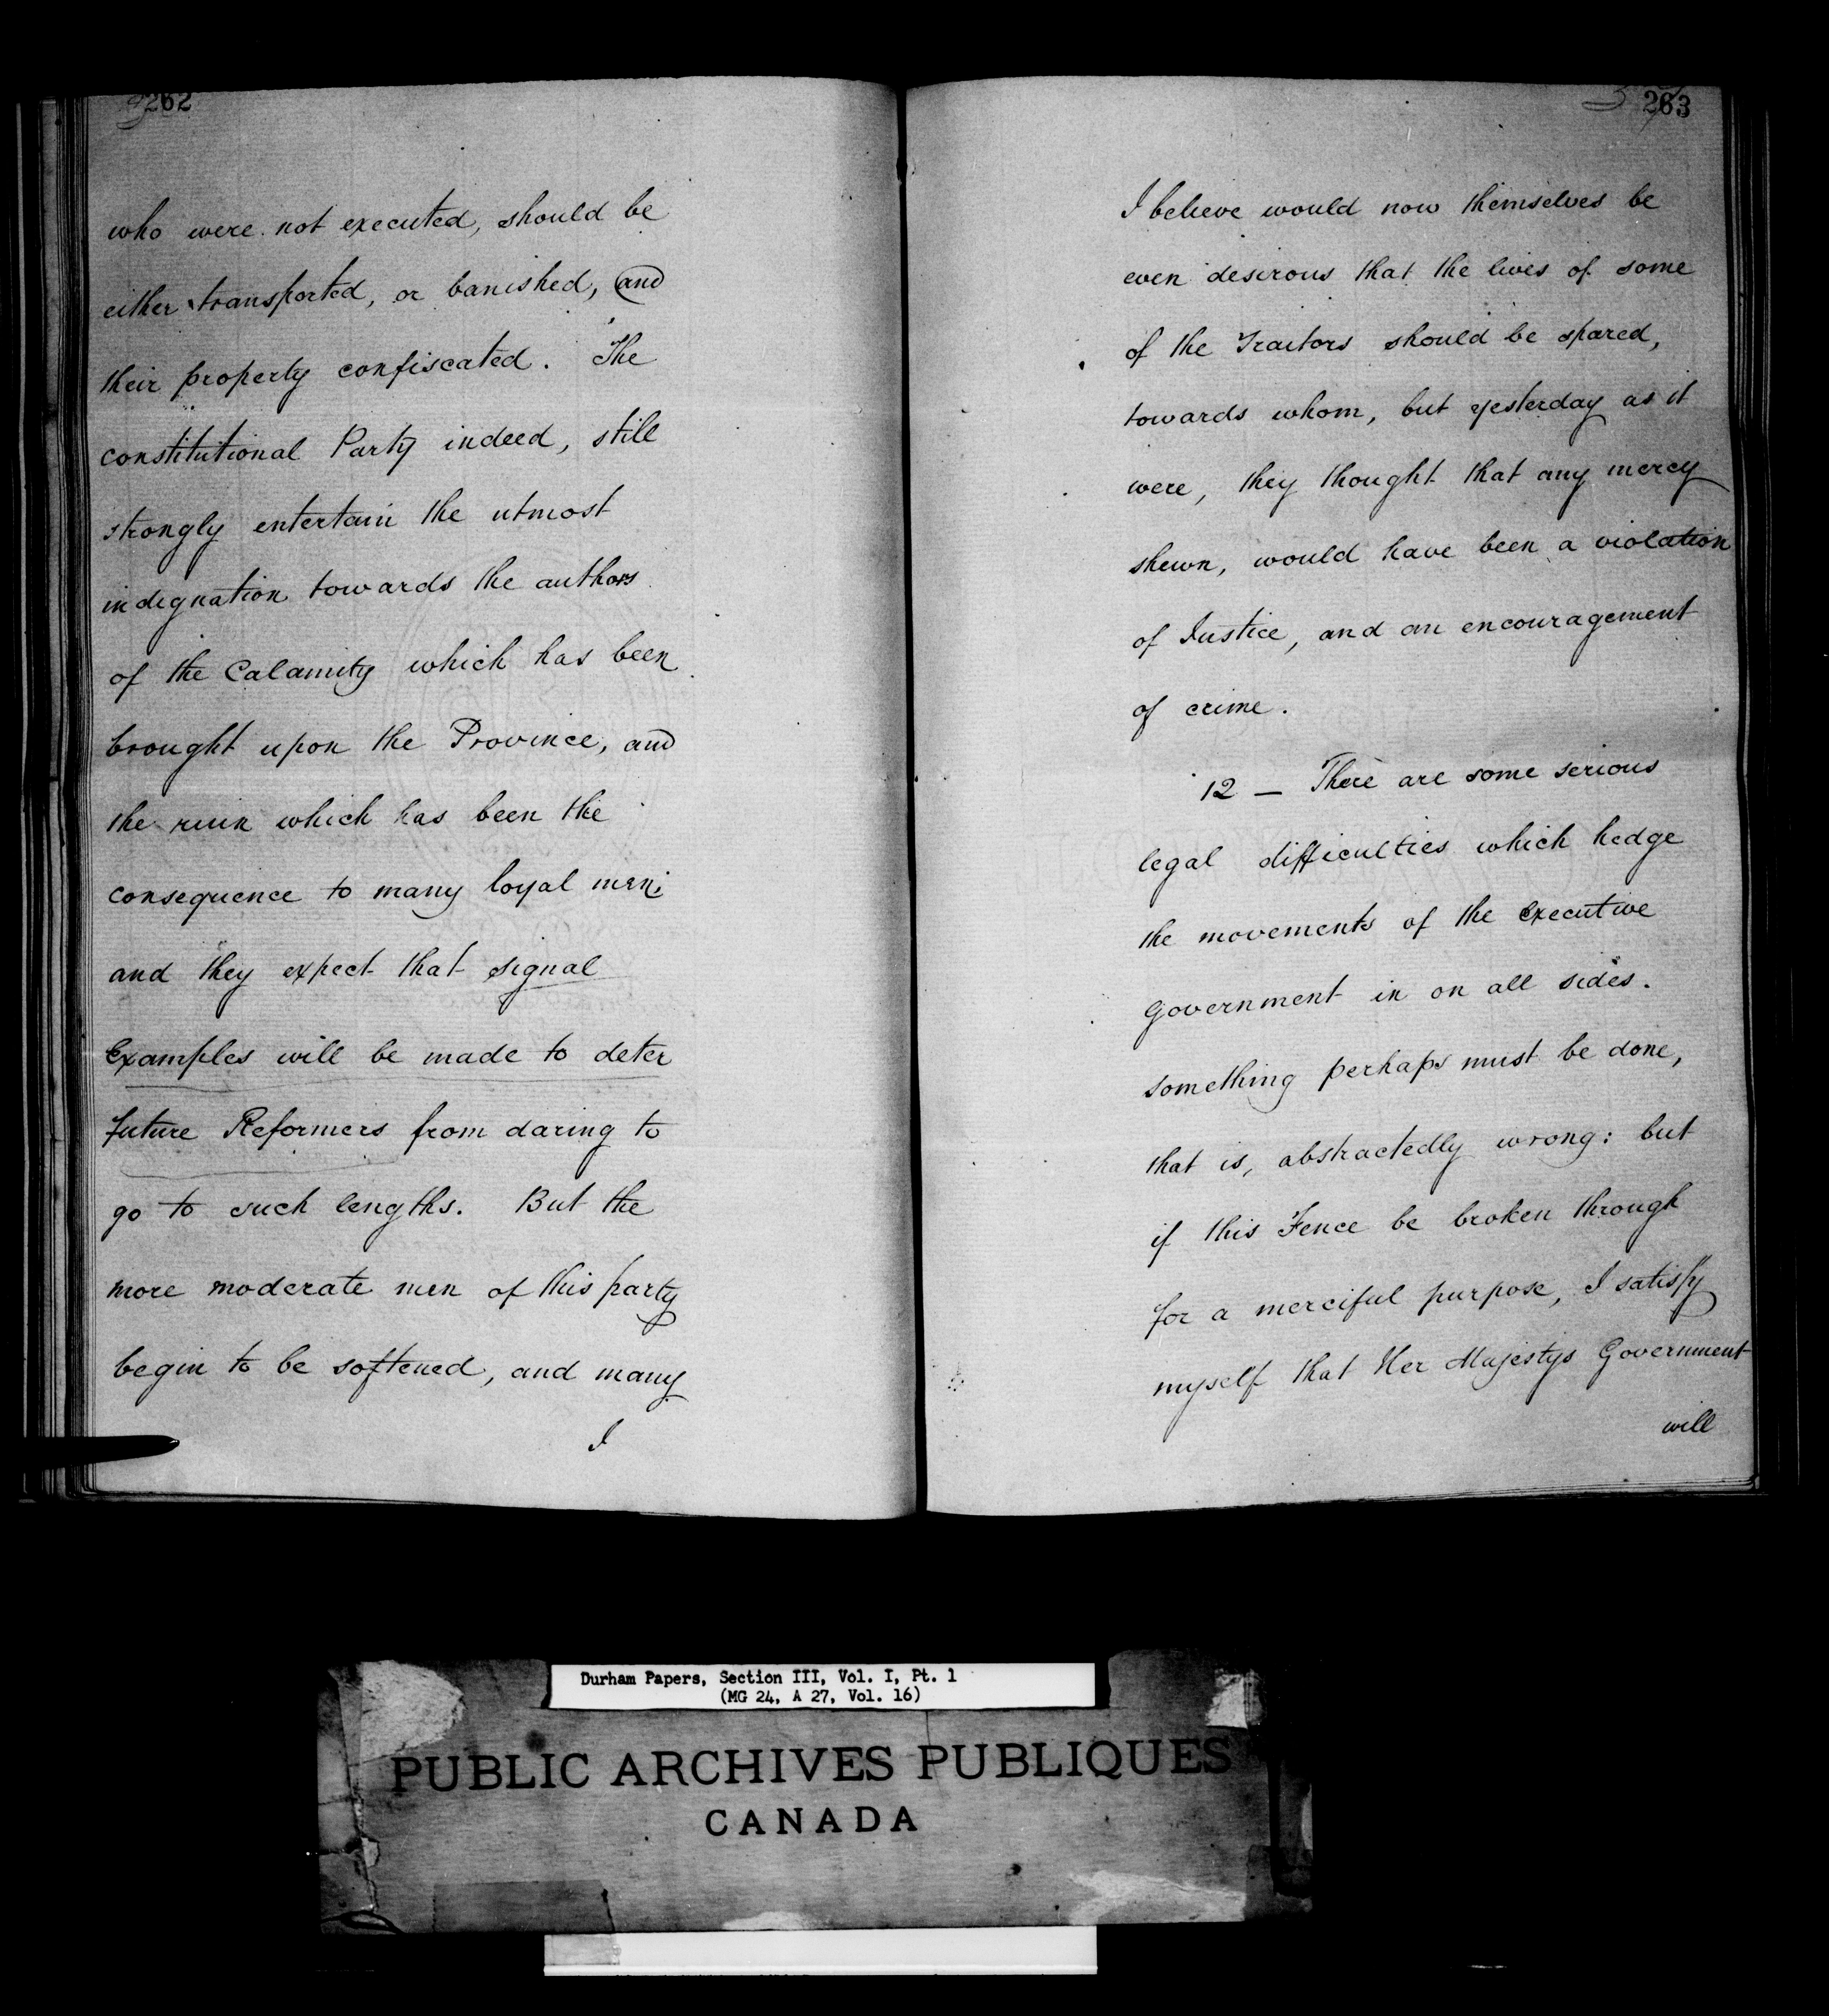 262
who were not executed, should be
either transported, or banished, and
their property confiscated. The
constitutional Party indeed, still
strongly entertain the utmost
indignation towards the authors
of the Calamity which has been
brought upon the Province, and
the ruin which has been the
consequence to many loyal men;
and they expect that signal
Examples will be made to deter
future Reformers from daring to
go to such lengths. But the
more moderate men of this party
begin to be softened, and many
I
263
I believe would now themselves be
even desirous that the lives of some
of the Traitors should be spared,
towards whom, but yesterday as it
were, they thought that any mercy
shewn, would have been a violation
of Justice, and an encouragement
of crime.
12 — There are some serious
legal difficulties which hedge
the movements of the Executive
Government in on all sides.
something perhaps must be done,
that is, abstractedly wrong: but
if this Fence be broken through
for a merciful purpose, I satisfy
myself that Her Majestys Government
will
Durham Papers, Section III, Vol. I, Pt. 1
(MG 24, A 27, Vol. 16)
PUBLIC ARCHIVES PUBLIQUES
CANADA